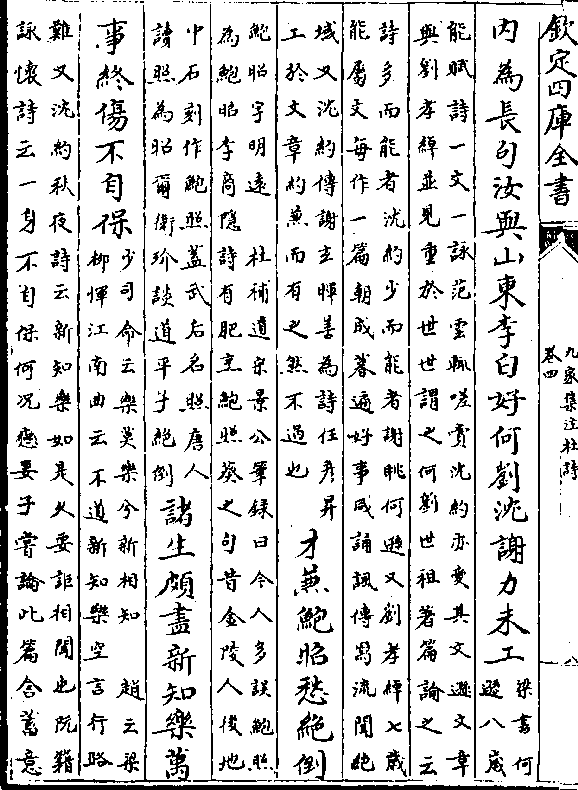 欽定四庫全書
九家集注杜詩
卷四
八
内為長句汝與山東李白好何劉沈謝力未工
梁書何
遜八歲
能賦詩一文一詠范雲輒嗟賞沈約亦愛其文遜文章
與劉孝綽並見重於世世謂之何劉世祖著篇論之云
詩多而能者沈約少而能者謝朓何遜又劉孝綽七歲
能屬文每作一篇朝成暮遍好事咸誦諷傳寫流聞絶
域又沈約傳謝玄暉善為詩任彦昇
工於文章約兼而有之然不過也
才兼鮑昭愁絶倒
鮑昭字明遠 杜補遺宋景公筆録曰今人多誤鮑照
為鮑昭李商隱詩有肥烹鮑照葵之句昔金陵人後地
中石刻作鮑照蓋武后名照唐人
讀照為昭爾衛玠談道平子絶倒
諸生頗盡新知樂萬
事終傷不自保
少司命云樂莫樂兮新相知 趙云梁
柳惲江南曲云不道新知樂空言行路
難又沈約秋夜詩云新知樂如是久要詎相聞也阮籍
詠懷詩云一身不自保何况戀妻子嘗論此篇含蓄意